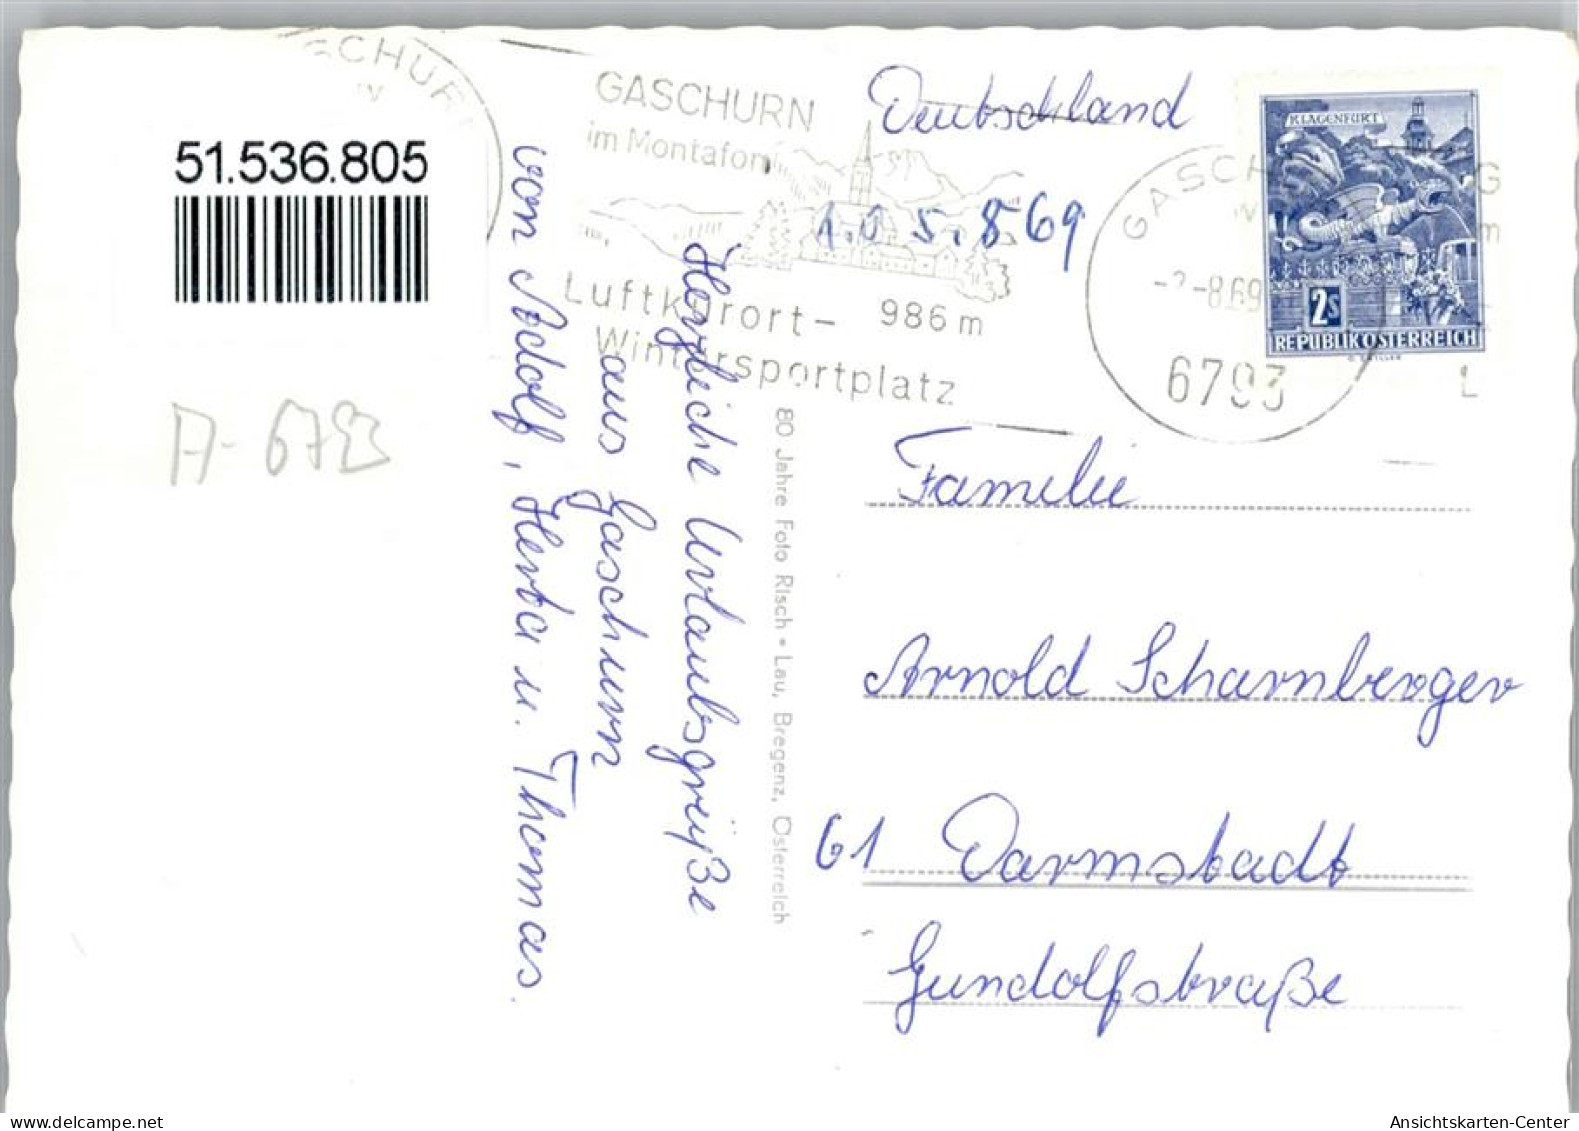 GASCHURN
im Montafon
Luftkurort- 986m
Wintersportplatz
51.536.805
A-6793
Deutschland
KLAGENFURT
2S
REPUBLIK ÖSTERREICH
6793
Herzliche Urlaubsgrüße
aus Gaschurn
von Adolf, Herta u. Thomas.
80 Jahre Foto Risch • Lau, Bregenz, Österreich
Familie
Arnold Scharnberger
61 Darmstadt
Gundolfstraße
delcampe.net
Ansichtskarten-Center